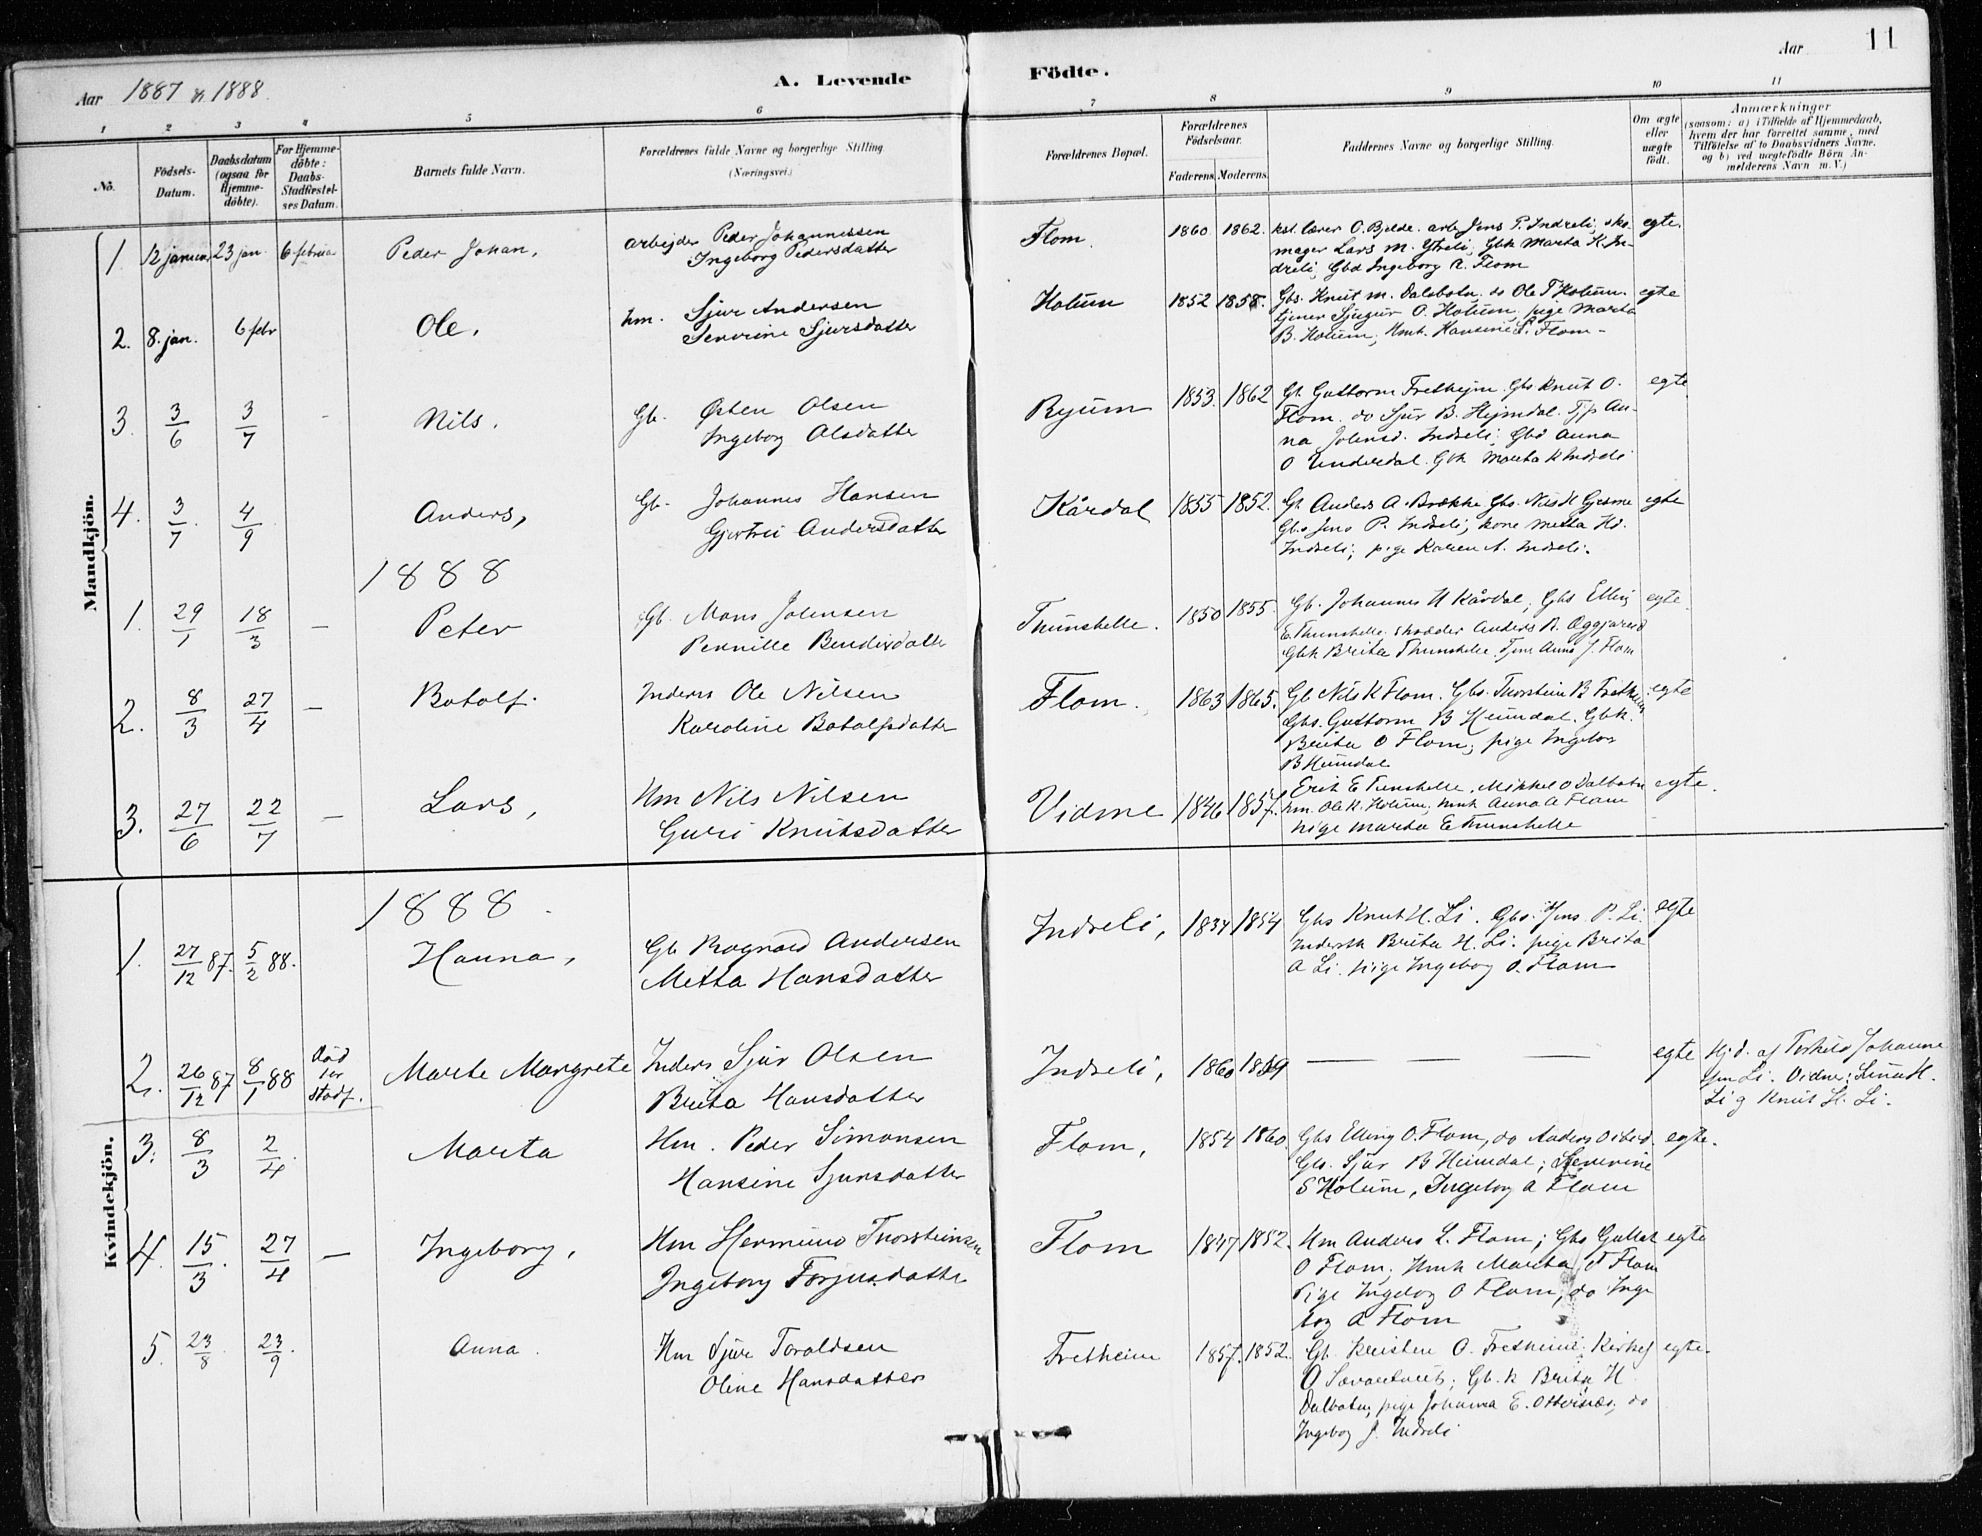 Aar 1887 & 1888.
A. Levende
Födte.
Aar
11
1
2
3
4
5
6
7
8
9
10
11
No.
Födsels-
Datum.
Daabsdatum
(ogsaa for
Hjemme-
döbte).
For Hjemme-
döbte:
Daabs-
Stadfæstel-
ses Datum.
Barnets fulde Navn.
Forældrenes fulde Navne og borgerlige Stilling.
(Næringsvei.)
Forældrenes Bopæl.
Forældrenes
Födselsaar.
Faderens. Moderens.
Faddernes Navne og borgerlige Stilling.
Om ægte
eller
uægte
födt.
Anmærkninger
(saasom: a) i Tilfælde af Hjemmedaab,
hvem der har forrettet samme, med
Tilföielse af to Daabsvidners Navne,
og b) ved uægtefödte Börn An-
melderens Navn m. V.)
Mandkjön.
1. 12 januar 23 jan. 6 februar Peder Johan, arbejder Peder Johannessen Flom. 1860 1862. kst. lærer O. Bjelde. arb Jens P. Indreli, sko- egte.
Ingeborg Pedersdatter mager Lars M. Ytreli, Gbk Marta K In-
dreli, Gbd Ingeborg A. Flom
2. 8. jan. 6 febr Ole, hm. Sjur Andersen Holum 1852 1858. Gbs. Knut M. Dalsbotn. do Ole T Holum. egte
Severine Sjursdatter tjener Sjugur O. Holum, pige Marta
B. Holum, Hmk. Hansine S. Flom-
3. 3/6 3/7 - Nils. Gb. Østen Olsen Ryum 1853. 1862 Gb. Guttorm Fretheim. Gbs Knut O. egte
Ingeborg Olsdatter Flom. do Sjur B. Hejmdal. Tjp An-
na Johnsd. Indreli; Gbd Anna
O Underdal. Gbk Marta K Indreli
4. 3/7. 4/9 Anders, Gb. Johannes Hansen Kårdal 1855 1852. Gb Anders A. Brekke Gbs. Nils H Gjesme egte
Gjertrui Andersdatter Gbs Jens P. Indreli; kone Metta Hd.
Indreli; pige Karen A. Indreli.
1888
1. 29/1 18/3 - Peter Gb. Mons Johnsen Thunshelle. 1850 1855. Gb. Johannes H Kårdal; Gbs Elling egte.
Pernille Bendixdatter E. Thunshelle. skrædder Anders R.
Gbk Brita Thunshelle. Tjene Anna J. Flom
2. 8/3 27/4 - Botolf. Inders Ole Nilsen Flom. 1863 1865. Gb Nils K Flom. Gbs. Thorstein B Fretheim egte
Karoline Botolfsdatter Gbs. Guttorm B Heimdal. Gbk.
Brita O Flom; pige Ingebor
B Heimdal
3. 27/6 22/7 - Lars, Hm Nils Nilsen Vidme 1846 1857. Erik E Tunshelle, Mikkel O Dalbotn egte.
Guri Knutsdatter hm. Ole K. Holum; hmk Anna A Flom
pige Marta E Thunshelle
Kvindekjön.
1888.
1. 27/12 87. 5/2 88. Hanna, Gb Ragnald Andersen Indreli, 1834 1854 Gbs Knut H. Li. Gbs. Jens P. Li. egte
Metta Hansdatter Indersk Brita H. Li. pige Brita
A Li. pige Ingeborg O. Flom
2. 26/12 87 8/1 88 död før stadf. Marte Margrete Inders Sjur Olsen Indreli, 1860 1859 - - - egte Hjd. af Torkild Johanne
Brita Hansdatter sen Li. Vidner: H.
Li og Knut H. Li.
3. 8/3 2/4. Marta Hm. Peder Simonsen Flom, 1854 1860. Gbs Elling O. Flom, do Anders egte.
Hansine Sjursdatter Gbs. Sjur B Heimdal; Severine
S Holum, Ingeborg A Flom
4. 15/3. 27/4 - Ingeborg, Hm Hermund Thorsteinsen Flom 1847 1852. Hm Anders L. Flom; Gbs Gullak egte
Ingeborg Torjusdatter O Flom, Hmk Marta T Flom
Pige Ingebor O Flom, do Inge
borg A Flom
5. 23/8. 23/9. Anna. Hm Sjur Toraldsen Fretheim 1857. 1852. Gb. Kristen O. Fretheim; Kirkes egte.
Oline Hansdatter O ; Gb.k Brita H
Dalbotn, pige Johanna E. Otternæs, do
Ingebor J. Indreli